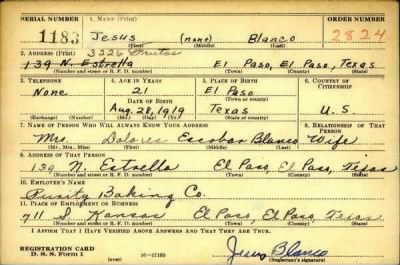 SERIAL NUMBER 1. NAME (Print) ORDER NUMBER
1183 Jesus (none) Blanco 2824
(First) (Middle) (Last)
2. ADDRESS (Print) 3226 Frutas
139 N. Estrella El Paso, El Paso, Texas
(Number and street or R. F. D. number) (Town) (County) (State)
3. TELEPHONE 4. AGE IN YEARS 5. PLACE OF BIRTH 6. COUNTRY OF CITIZENSHIP
None 21 El Paso
(Town or county)
DATE OF BIRTH
Aug. 28, 1919 Texas U.S.
(Exchange) (No.) (Mo.) (Day) (Yr.) (State or country)
7. NAME OF PERSON WHO WILL ALWAYS KNOW YOUR ADDRESS 8. RELATIONSHIP OF THAT PERSON
Mrs. Dolores Escobar Blanco Wife
(Mr., Mrs., Miss) (First) (Middle) (Last)
9. ADDRESS OF THAT PERSON
139 N. Estrella El Paso, El Paso, Texas
(Number and street or R. F. D. number) (Town) (County) (State)
10. EMPLOYER'S NAME
Purity Baking Co.
11. PLACE OF EMPLOYMENT OR BUSINESS
711 S. Kansas El Paso, El Paso, Texas
(Number and street or R. F. D. number) (Town) (County) (State)
I AFFIRM THAT I HAVE VERIFIED ABOVE ANSWERS AND THAT THEY ARE TRUE.
REGISTRATION CARD
D. S. S. Form 1 (over) 16—17105 Jesus Blanco
(Registrant's signature)